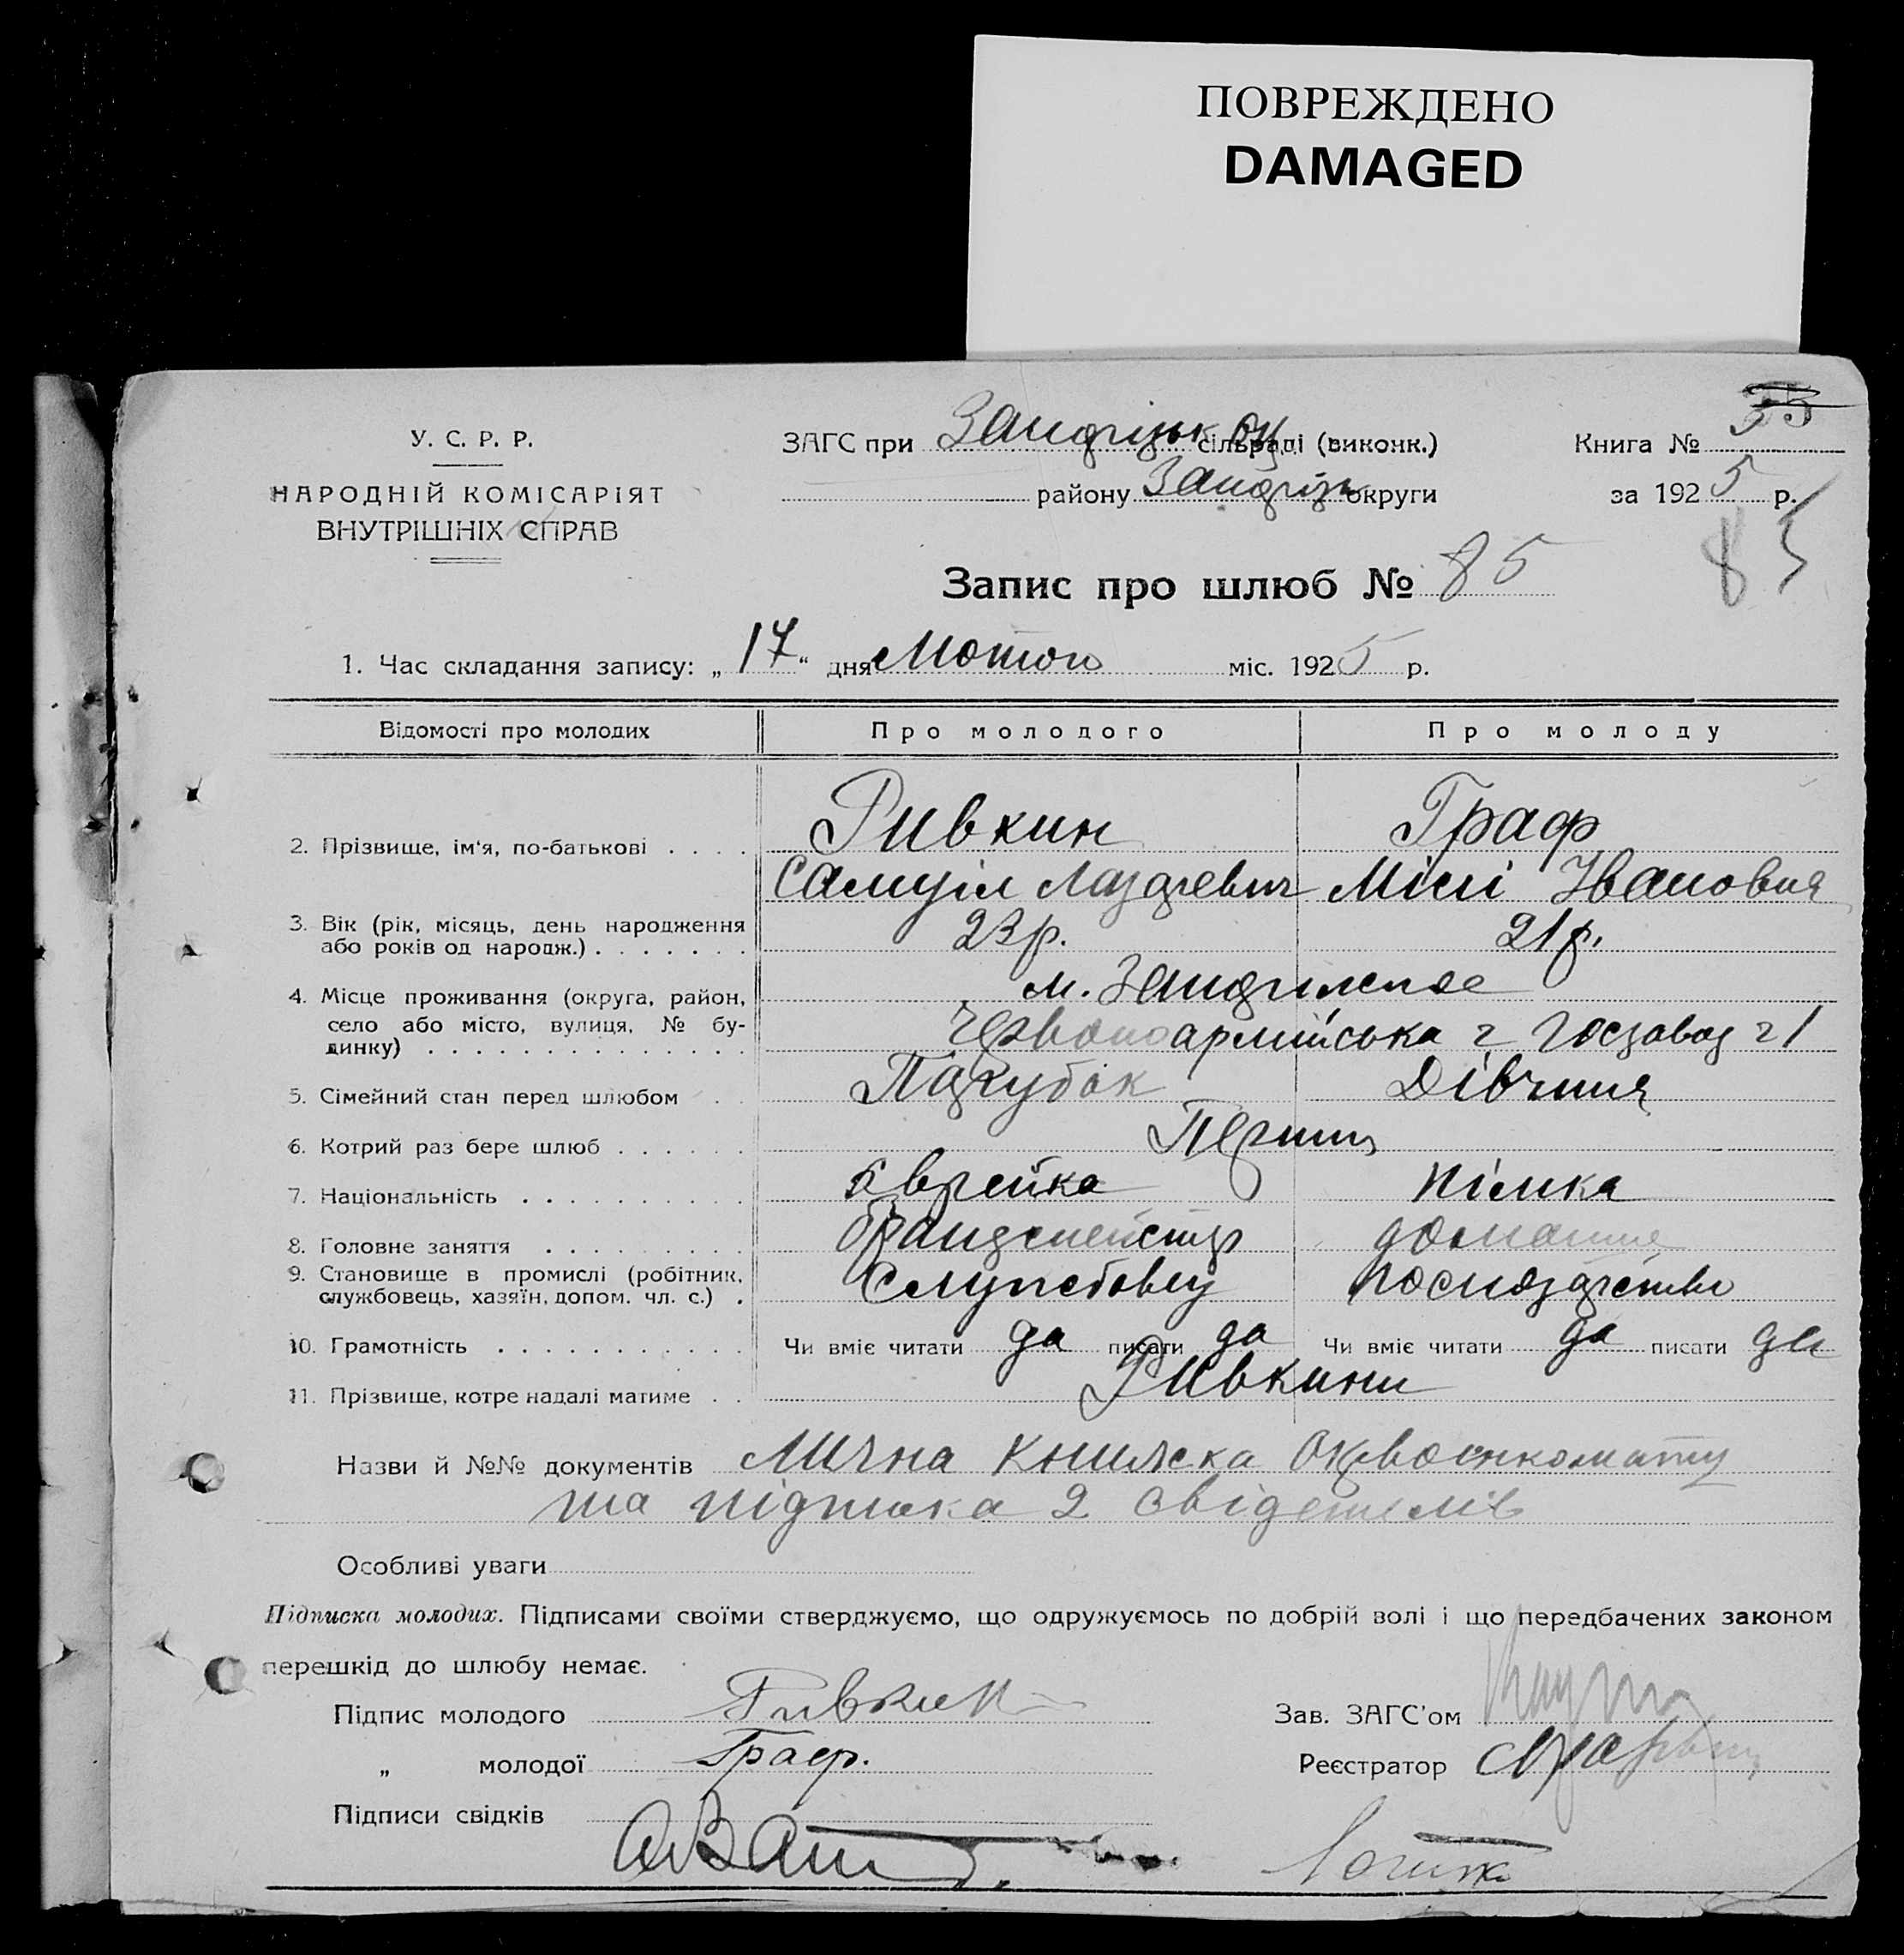 ПОВРЕЖДЕНО
DAMAGED
У. С. Р. Р.
НАРОДНІЙ КОМІСАРІЯТ
ВНУТРІШНІХ СПРАВ
ЗАГС при сільраді (виконк.)
району округи
Книга № 35
за 1925 р.
85
Запис про шлюб № 85
1. Час складання запису: „17“ дня Лютого міс. 1925 р.
Відомості про молодих Про молодого Про молоду
2. Прізвище, ім'я, по-батькові . . . . Ривкин Граф
Самуіл Лазаревич Мілі Івановна
3. Вік (рік, місяць, день народження
або років од народж.) . . . . . . . 23 р. 21 р.
4. Місце проживання (округа, район,
село або місто, вулиця, № бу-
динку) . . . . . . . . . . . . . . Червоноармійська Госзавод 1
м.
5. Сімейний стан перед шлюбом . . Парубок Дівчина
6. Котрий раз бере шлюб . . . . . . Перший
7. Національність . . . . . . . . . . Німка
8. Головне заняття . . . . . . . . . брандмейстр домашнє
9. Становище в промислі (робітник,
службовець, хазяїн, допом. чл. с.) . Службовец господарство
10. Грамотність . . . . . . . . . . . Чи вміє читати да писати да Чи вміє читати да писати да
11. Прізвище, котре надалі матиме . . Ривкини
Назви й №№ документів Лична книжка Окрвоєнкомату
та підписка 2 свідетелів
Особливі уваги
Підписка молодих. Підписами своїми стверджуємо, що одружуємось по добрій волі і що передбачених законом
перешкід до шлюбу немає.
Підпис молодого Ривкин
Зав. ЗАГС'ом
„ молодої Граф.
Реєстратор
Підписи свідків